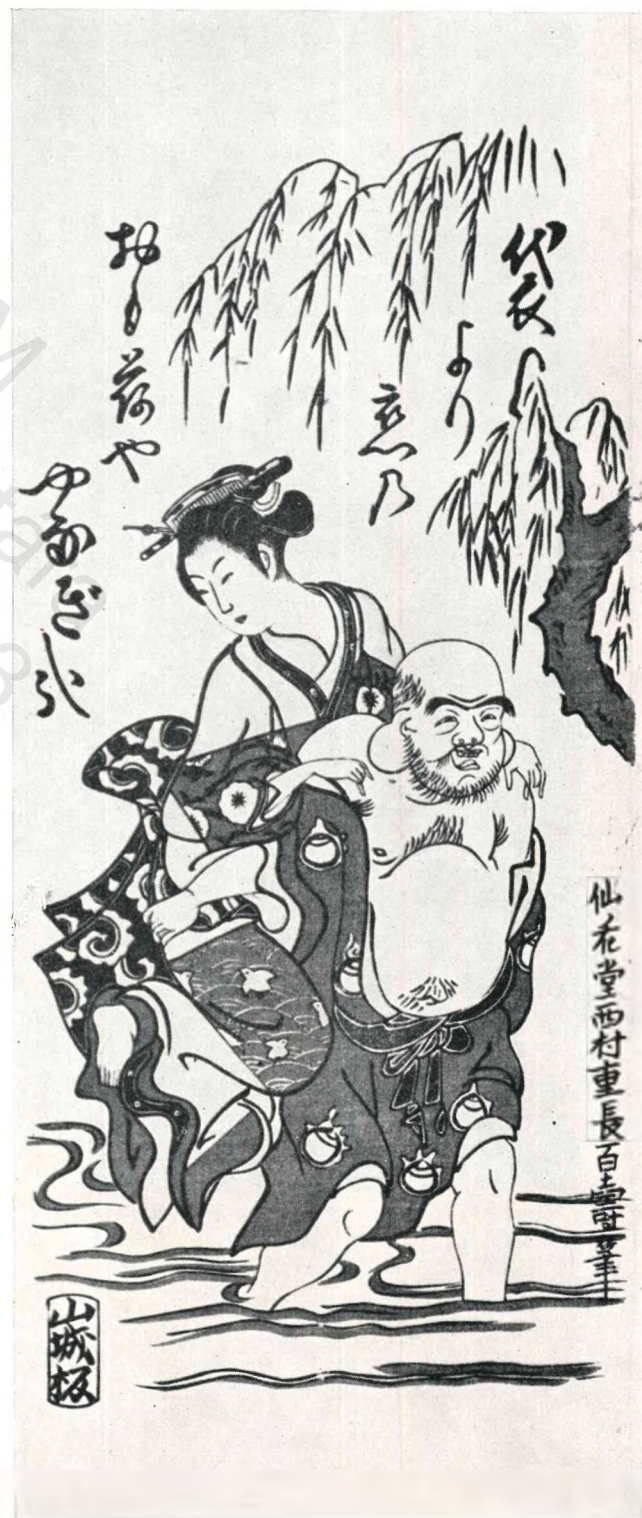 袋
より
恋乃
おも荷や
やなぎ
仙花堂西村重長筆
山城板